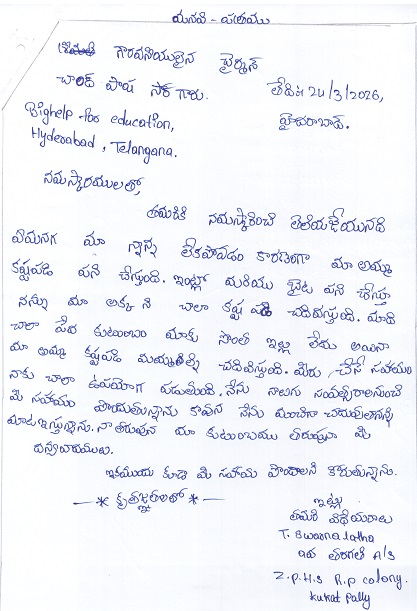 మనవి - పత్రము
గౌరవనీయులైన ఛైర్మన్
చాంద్ పాషా సర్ గారు.
తేది: 20/3/2026,
హైదరాబాద్.
Bighelp for education,
Hyderabad, Telangana.
నమస్కారములతో,
తమరికి నమస్కరించి తెలియజేయునది
ఏమనగ మా నాన్న లేకపోవడం కారణంగా మా అమ్మ
కష్టపడి పని చేస్తుంది. ఇంట్లో మరియు బైట పని చేస్తూ
నన్ను మా అక్క ని చాలా కష్ట పడి చదివిస్తుంది. మాది
చాలా పేద కుటుంబం మాకు సొంత ఇల్లు లేదు అయినా
మా అమ్మ కష్టపడి మమ్మల్ని చదివిస్తుంది. మీరు చేసే సహాయం
నాకు చాలా ఉపయోగ పడుతుంది. నేను నాలుగు సంవత్సరాలనుంచి
మీ సహాయం పొందుతున్నాను కావున నేను మంచిగా చదువుతానని
మాట ఇస్తున్నాను. నా తరుపున మా కుటుంబము తరుపునా మీ
ధన్యవాదములు.
ఇకముందు కూడా మీ సహాయ పొందాలని కోరుతున్నాను.
—*— కృతజ్ఞతలతో *—
ఇట్లు
తమరి విధేయురాలు
T. Swarna latha
తరగతి A/S
Z.P.H.S R.p colony.
kukat pally